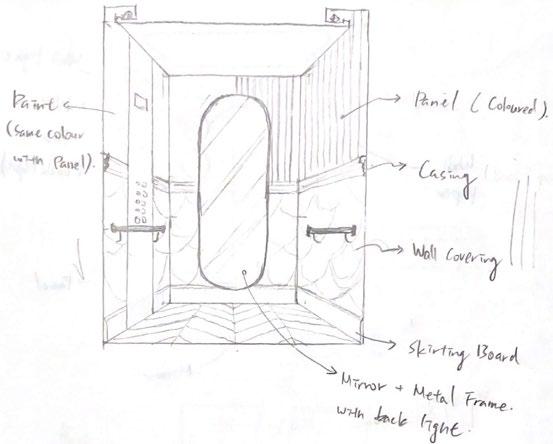 Paint
(same colour
with Panel).
Panel (Coloured).
Casing
Wall Covering
Skirting Board
Mirror + Metal Frame.
with back light.